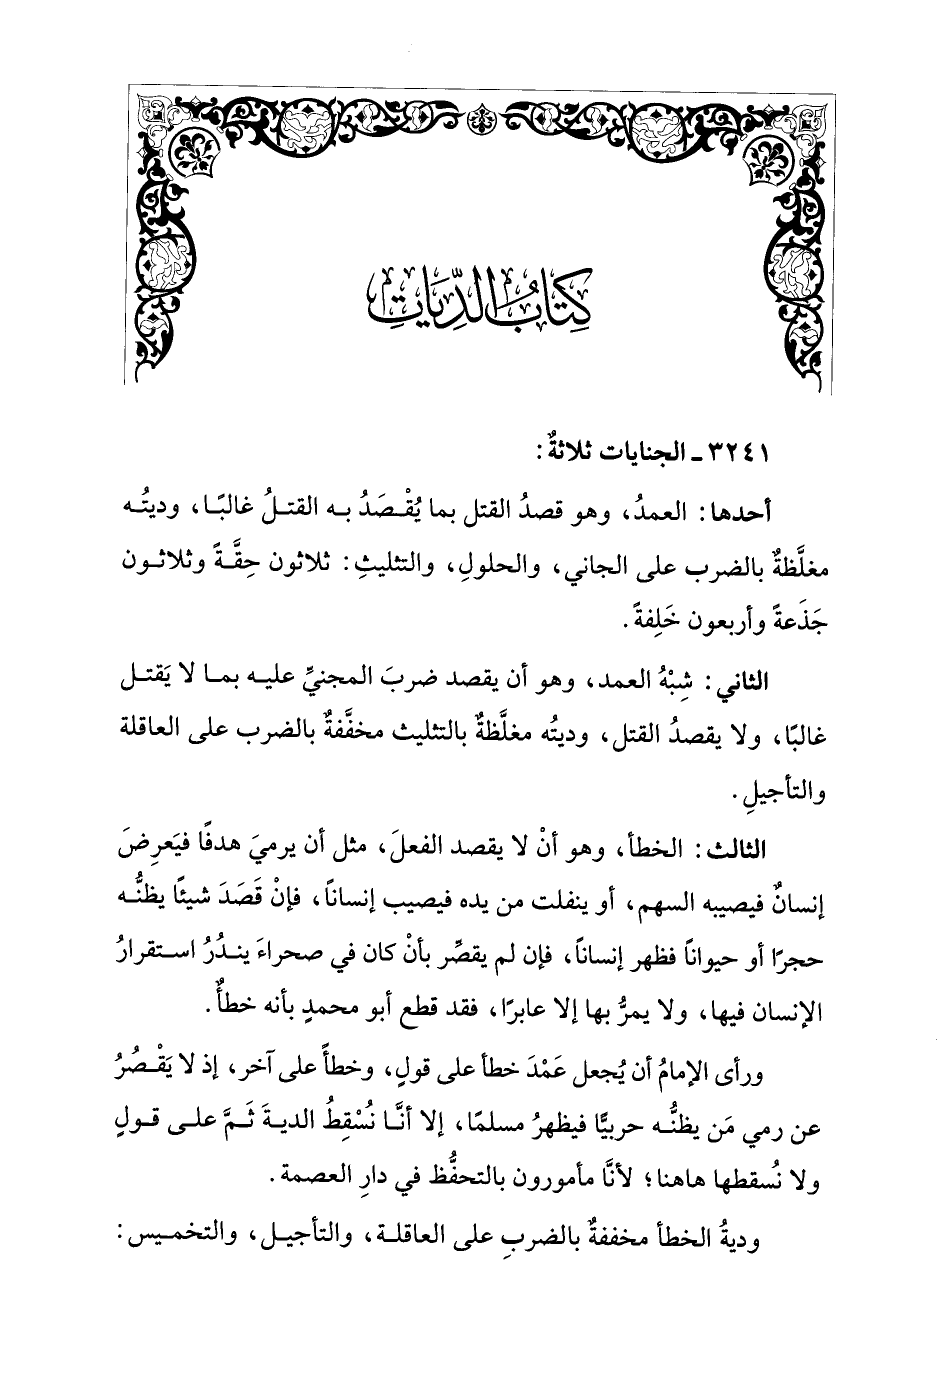 كِتَابُ الدِّيَاتِ
٣٢٤١ ـ الجنايات ثلاثةٌ:
أحدها: العمدُ، وهو قصدُ القتل بما يُقْصَدُ به القتلُ غالبًا، وديتُه
مغلَّظةٌ بالضرب على الجاني، والحلولِ، والتثليثِ: ثلاثون حِقَّةً وثلاثون
جَذَعةً وأربعون خَلِفةً.
الثاني: شِبْهُ العمد، وهو أن يقصد ضربَ المجنيِّ عليه بما لا يَقتل
غالبًا، ولا يقصدُ القتل، وديتُه مغلَّظةٌ بالتثليث مخفَّفةٌ بالضرب على العاقلة
والتأجيلِ.
الثالث: الخطأ، وهو أنْ لا يقصد الفعلَ، مثل أن يرميَ هدفًا فيَعرِضَ
إنسانٌ فيصيبه السهم، أو ينفلت من يده فيصيب إنساناً، فإنْ قَصَدَ شيئًا يظنُّه
حجرًا أو حيواناً فظهر إنساناً، فإن لم يقصِّر بأنْ كان في صحراءَ يندُرُ استقرارُ
الإنسان فيها، ولا يمرُّ بها إلا عابرًا، فقد قطع أبو محمدٍ بأنه خطأٌ.
ورأى الإمامُ أن يُجعل عَمْدَ خطأ على قولٍ، وخطأً على آخر، إذ لا يَقْصُرُ
عن رمي مَن يظنُّه حربيًّا فيظهرُ مسلمًا، إلا أنَّا نُسْقِطُ الديةَ ثَمَّ على قولٍ
ولا نُسقطها هاهنا؛ لأنَّا مأمورون بالتحفُّظ في دارِ العصمة.
وديةُ الخطأ مخففةٌ بالضربِ على العاقلة، والتأجيل، والتخميس: